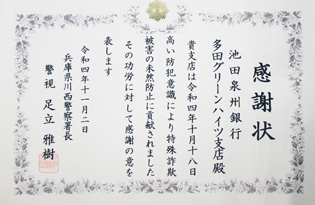 感謝状
池田泉州銀行
多田グリーンハイツ支店殿
貴支店は令和四年十月十八日
高い防犯意識により特殊詐欺
被害の未然防止に貢献されました
その功労に対して感謝の意を
表します
令和四年十一月二日
兵庫県川西警察署長
警視 足立 雅樹